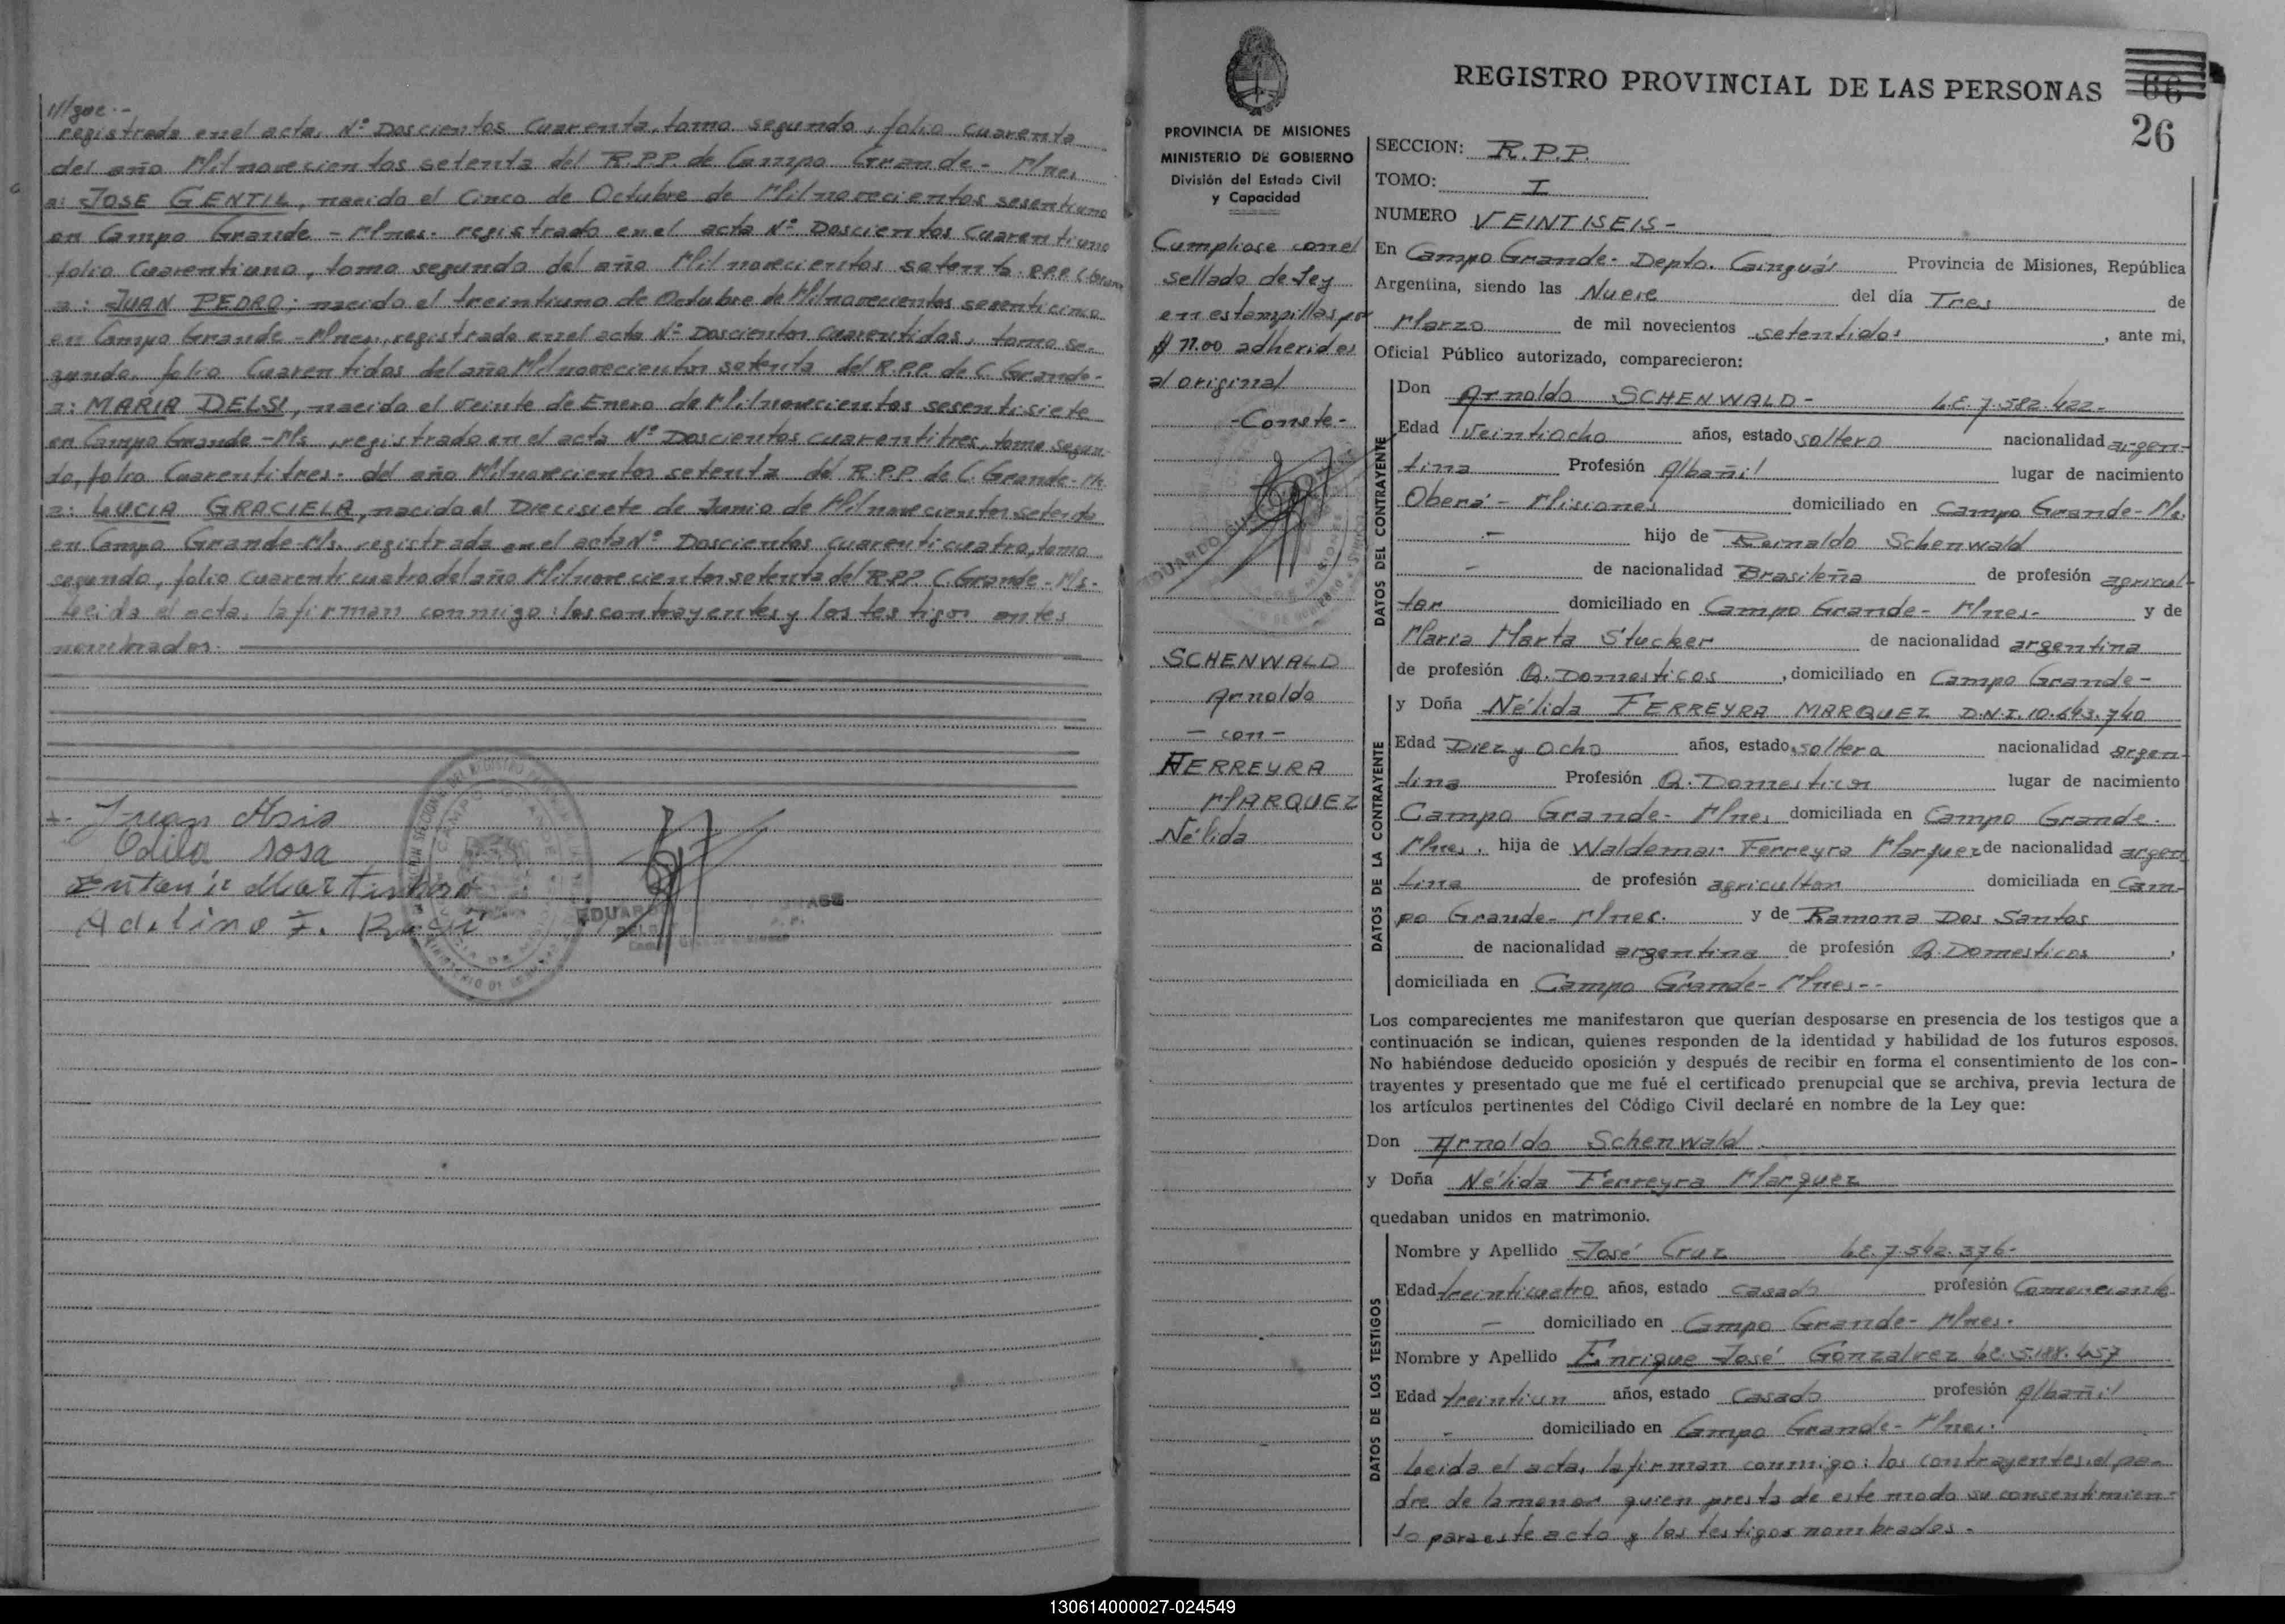 registrada en el acta, Nº Doscientos Cuarenta, tomo segundo, folio cuarenta
del año Mil novecientos setenta del R.P.P. de Campo Grande - Mnes.
a: JOSE GENTIL, nacido el Cinco de Octubre de Mil novecientos sesentiuno
en Campo Grande - Mnes. registrado en el acta Nº Doscientos Cuarentiuno
folio Cuarentiuno, tomo segundo del año Mil novecientos setenta. R.P.P. C. Grande
a: JUAN PEDRO; nacido el treintiuno de Octubre de Mil novecientos sesenticinco
en Campo Grande - Mnes., registrado en el acta Nº Doscientos Cuarentidos, tomo se-
gundo, folio Cuarentidos del año Mil novecientos setenta del R.P.P. de C. Grande-
a: MARIA DELSI, nacido el veinte de Enero de Mil novecientos sesentisiete
en Campo Grande - Ms., registrado en el acta Nº Doscientos cuarentitres, tomo segun-
do, folio Cuarentitres. del año Mil novecientos setenta del R.P.P. de C. Grande - Ms.
a: LUCIA GRACIELA, nacida el Diecisiete de Junio de Mil novecientos setenta
en Campo Grande - Ms. registrada en el acta Nº Doscientos cuarenticuatro, tomo
segundo, folio cuarenticuatro del año Mil novecientos setenta del R.P.P. C. Grande - Ms.-
Leida el acta, la firman conmigo: los contrayentes y los testigos antes
nombrados.
Juan Asis
Odila Rosa
Adelino F.
REGISTRO PROVINCIAL DE LAS PERSONAS
66
26
PROVINCIA DE MISIONES
MINISTERIO DE GOBIERNO
División del Estado Civil
y Capacidad
Cumpliose con el
sellado de Ley
en estampillas por
$ 11.00 adherides
al original
-Conste-
SCHENWALD
Arnoldo
- con -
FERREYRA
MARQUEZ
Nélida
SECCION: R.P.P.
TOMO: I
NUMERO VEINTISEIS -
En Campo Grande - Depto. Cainguás Provincia de Misiones, República
Argentina, siendo las Nueve del día Tres de
Marzo de mil novecientos setentidos, ante mi,
Oficial Público autorizado, comparecieron:
DATOS DEL CONTRAYENTE
Don Arnoldo SCHENWALD - L.E. 7.582.422.-
Edad Veintiocho años, estado soltero nacionalidad argen-
tina Profesión Albañil lugar de nacimiento
Oberá - Misiones domiciliado en Campo Grande - Ms.
- hijo de Reinaldo Schenwald
- de nacionalidad Brasileña de profesión agricul-
tor domiciliado en Campo Grande - Mnes.- y de
Maria Marta Stucker de nacionalidad argentina
de profesión Q. Domesticos, domiciliado en Campo Grande -
DATOS DE LA CONTRAYENTE
y Doña Nélida FERREYRA MARQUEZ D.N.I. 10.643.740
Edad Diez y Ocho años, estado soltera nacionalidad argen-
tina Profesión Q. Domesticos lugar de nacimiento
Campo Grande - Mnes. domiciliada en Campo Grande.
Mnes. hija de Waldemar Ferreyra Marquez de nacionalidad argen
tina de profesión agricultor domiciliada en Cam-
po Grande - Mnes. y de Ramona Dos Santos
de nacionalidad argentina de profesión Q. Domesticos,
domiciliada en Campo Grande - Mnes.--
Los comparecientes me manifestaron que querían desposarse en presencia de los testigos que a
continuación se indican, quienes responden de la identidad y habilidad de los futuros esposos.
No habiéndose deducido oposición y después de recibir en forma el consentimiento de los con-
trayentes y presentado que me fué el certificado prenupcial que se archiva, previa lectura de
los artículos pertinentes del Código Civil declaré en nombre de la Ley que:
Don Arnoldo Schenwald
y Doña Nélida Ferreyra Marquez
quedaban unidos en matrimonio.
DATOS DE LOS TESTIGOS
Nombre y Apellido José Cruz L.E. 7.542.376-
Edad treinticuatro años, estado casado profesión Comerciante
- domiciliado en Campo Grande - Mnes.
Nombre y Apellido Enrique José Gonzalvez L.E. 5.188.457
Edad treintiun años, estado Casado profesión Albañil
- domiciliado en Campo Grande - Mnes.
Leida el acta, la firman conmigo: los contrayentes, el pa-
dre de la menor quien presta de este modo su consentimien-
to para este acto y los testigos nombrados.-
130614000027-024549